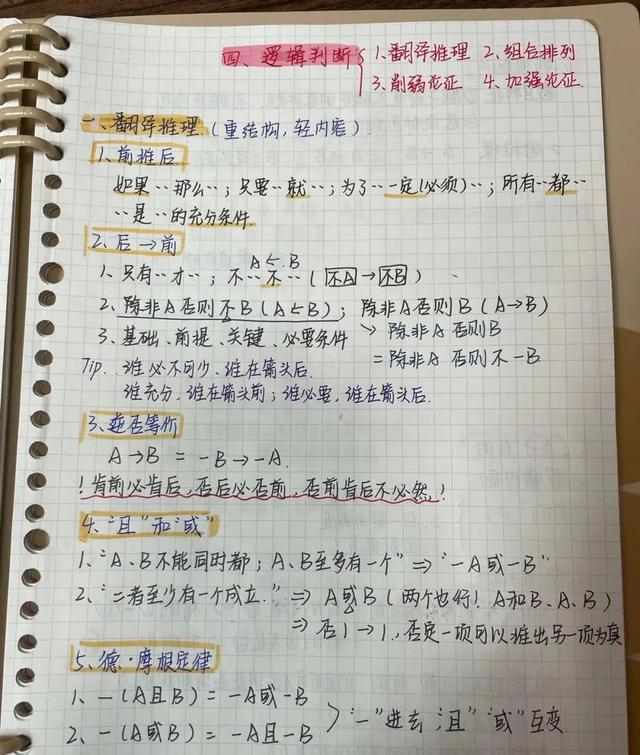 四、逻辑判断 { 1、翻译推理 2、组合排列
3、削弱论证 4、加强论证
一、翻译推理(重结构,轻内容).
1、前推后
如果…那么…;只要…就…;为了…一定(必须)…;所有…都…
…是…的充分条件
2、后→前
A←B
1、只有…才…;不…不…(不A→不B)
2、除非A否则不B(A←B);除非A否则B(A→B)
3、基础、前提、关键、必要条件 → 除非A 否则B
= 除非A 否则不-B
Tip… 谁必不可少、谁在箭头后.
谁充分,谁在箭头前;谁必要,谁在箭头后.
3、逆否等价
A→B = -B→-A.
!肯前必肯后,否后必否前,否前肯后不必然!
4、"且"和"或"
1、"A、B不能同时都;A、B至多有一个" ⇒ "-A或-B"
2、"二者至少有一个成立." ⇒ A或B(两个也行!A和B、A、B)
⇒ 否1→1,否定一项可以推出另一项为真
5、德·摩根定律
1、-(A且B)=-A或-B
2、-(A或B)=-A且-B > "-"进去;"且" "或"互变